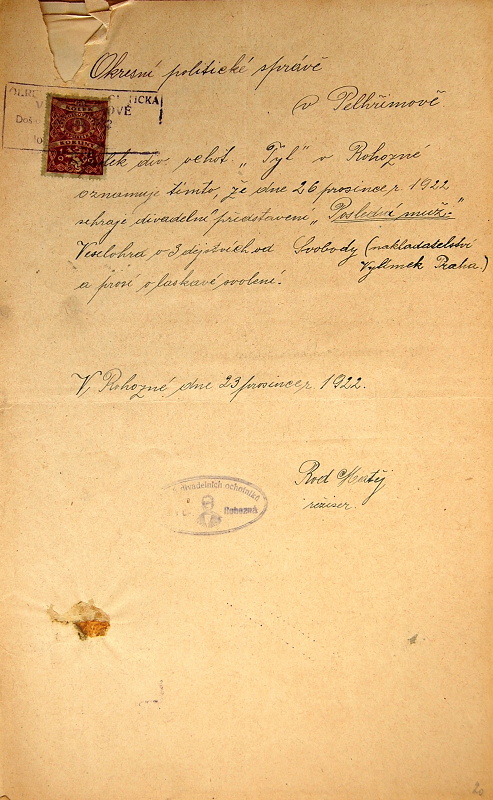 Okresní politické správě
v Pelhřimově
div. ochot. „Tyl" v Rohozné
oznamuje tímto, že dne 26 prosince r. 1922
sehraje divadelní představení „Poslední muž."
Veselohra o 3 dějstvích od Svobody (nakladatelství
Vylímek Praha.)
a prosí o laskavé svolení.
V Rohozné, dne 23 prosince r. 1922.
Matěj
režiser.
divadelních ochotníků
Rohozná